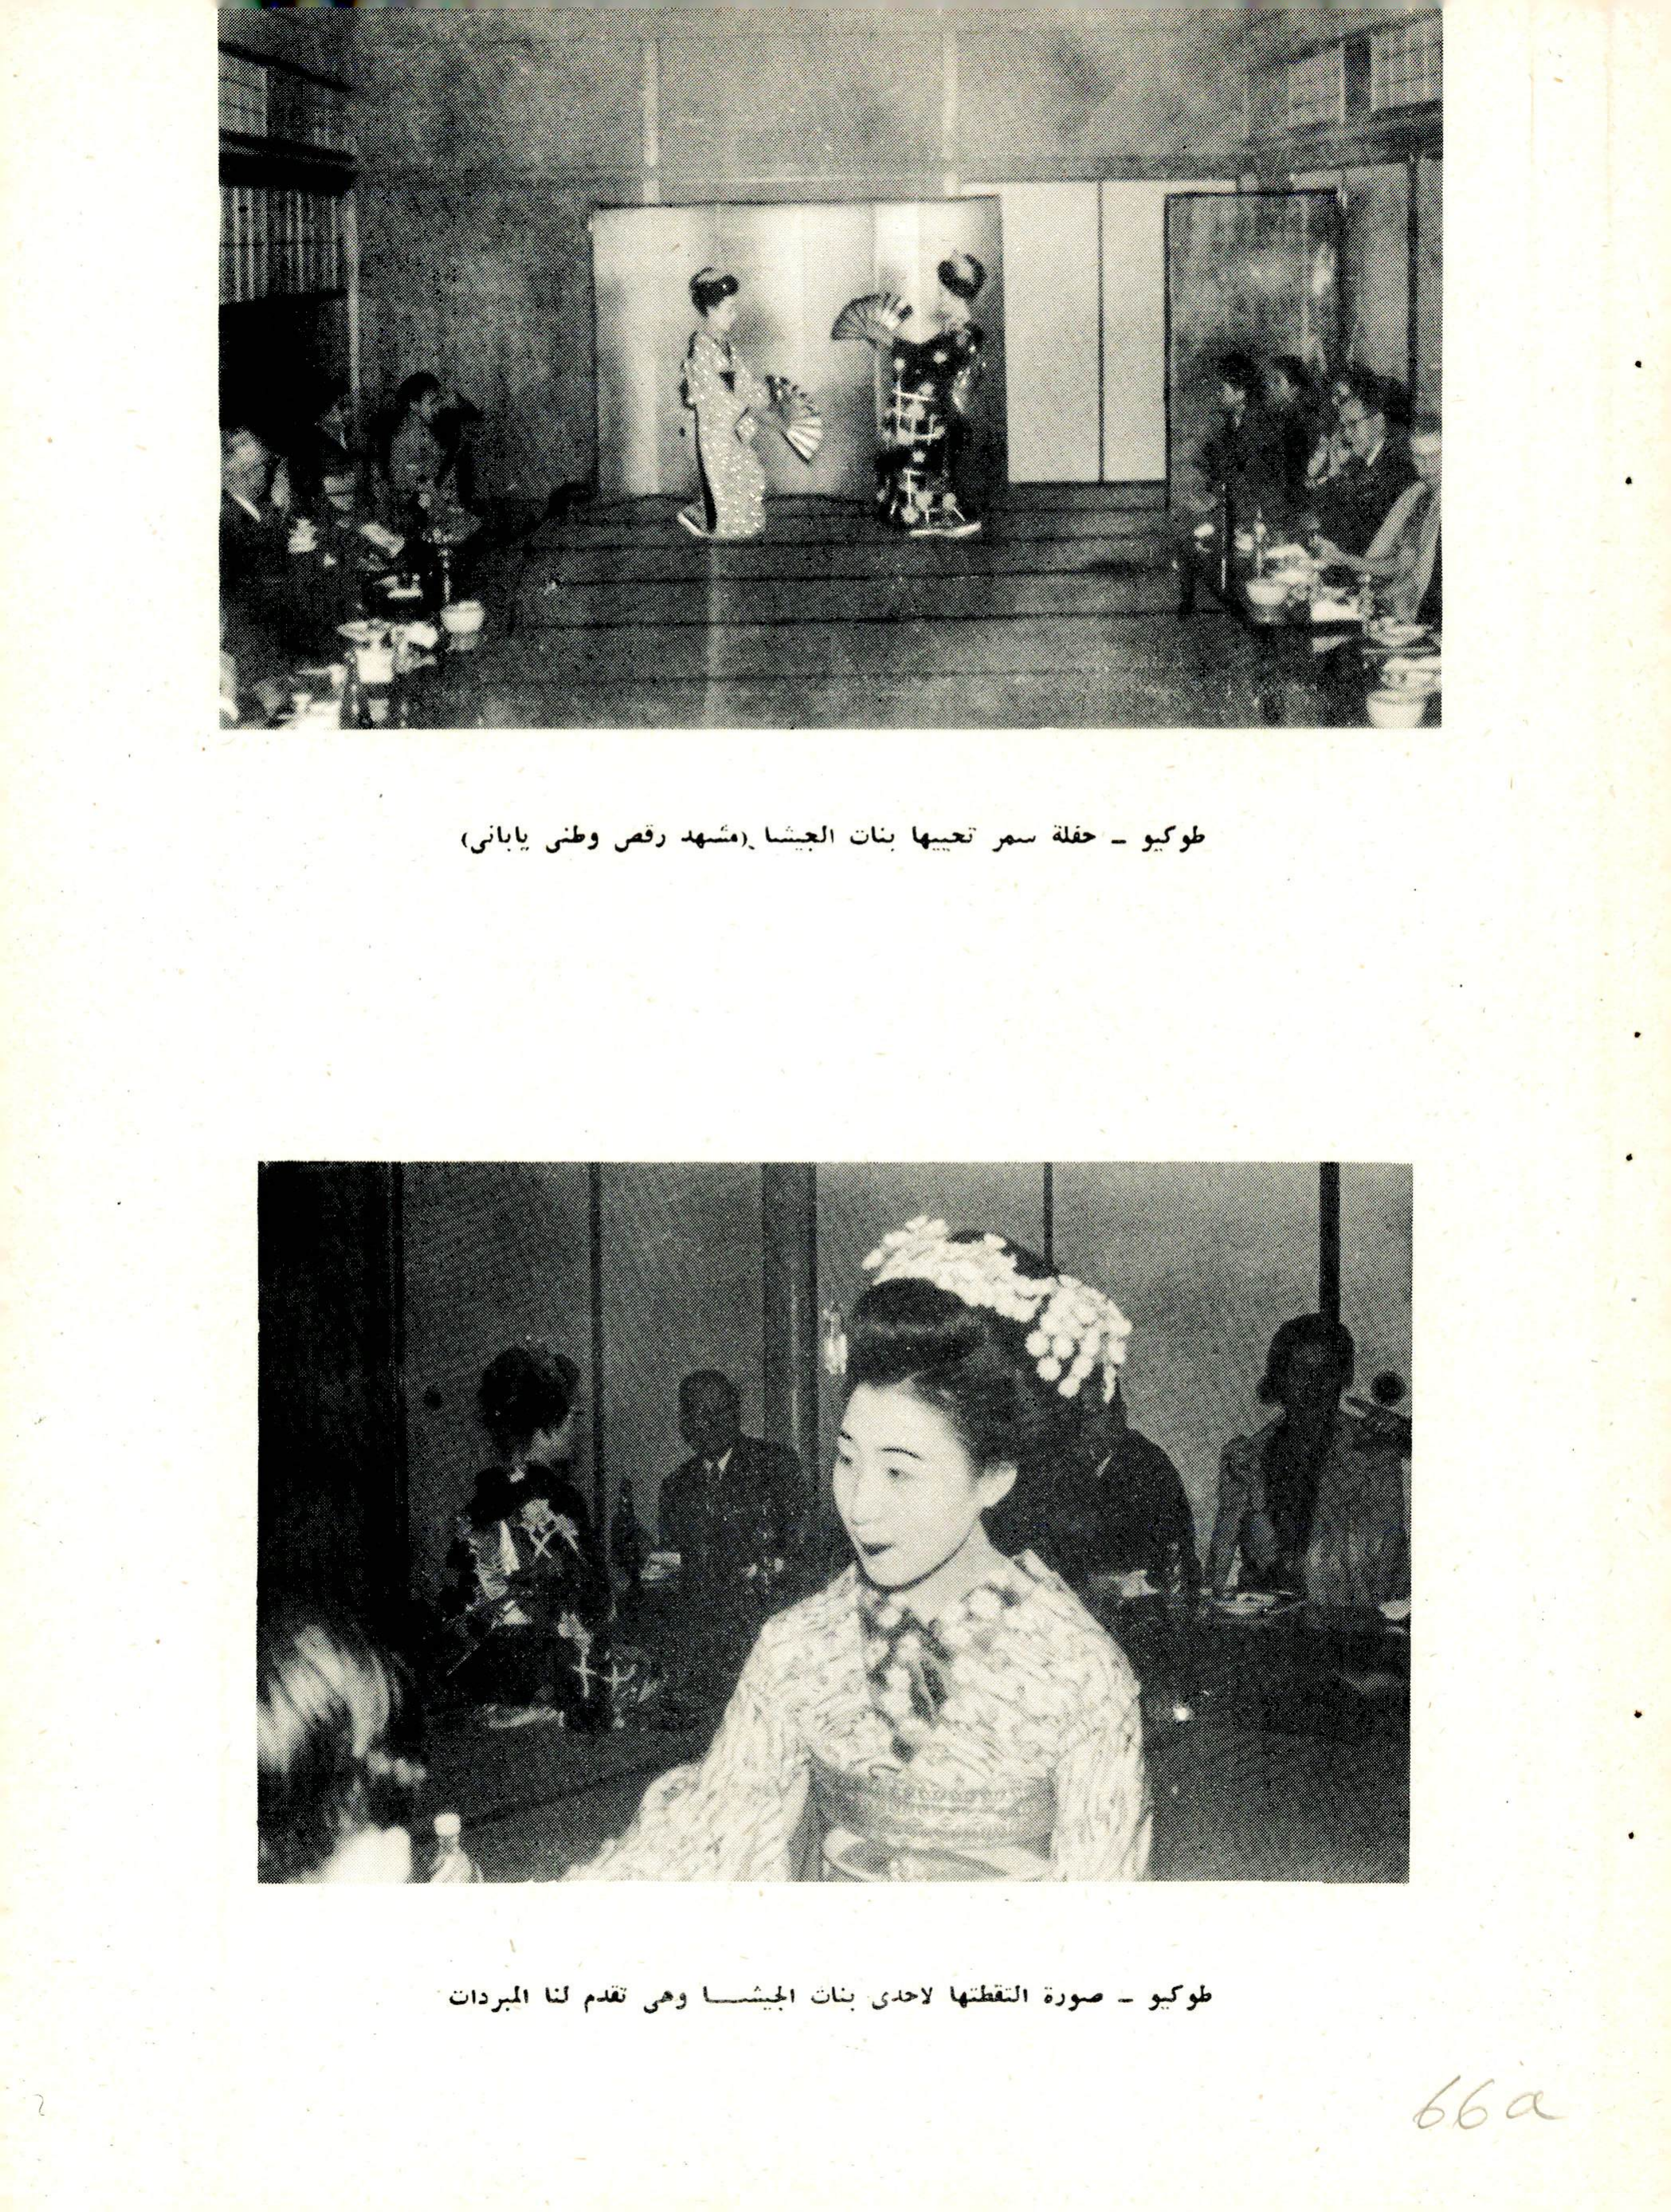 طوكيو ـ حفلة سمر تحييها بنات الجيشا (مشهد رقص وطنى يابانى)
طوكيو ـ صورة التقطتها لاحدى بنات الجيشـــا وهى تقدم لنا المبردات
66a